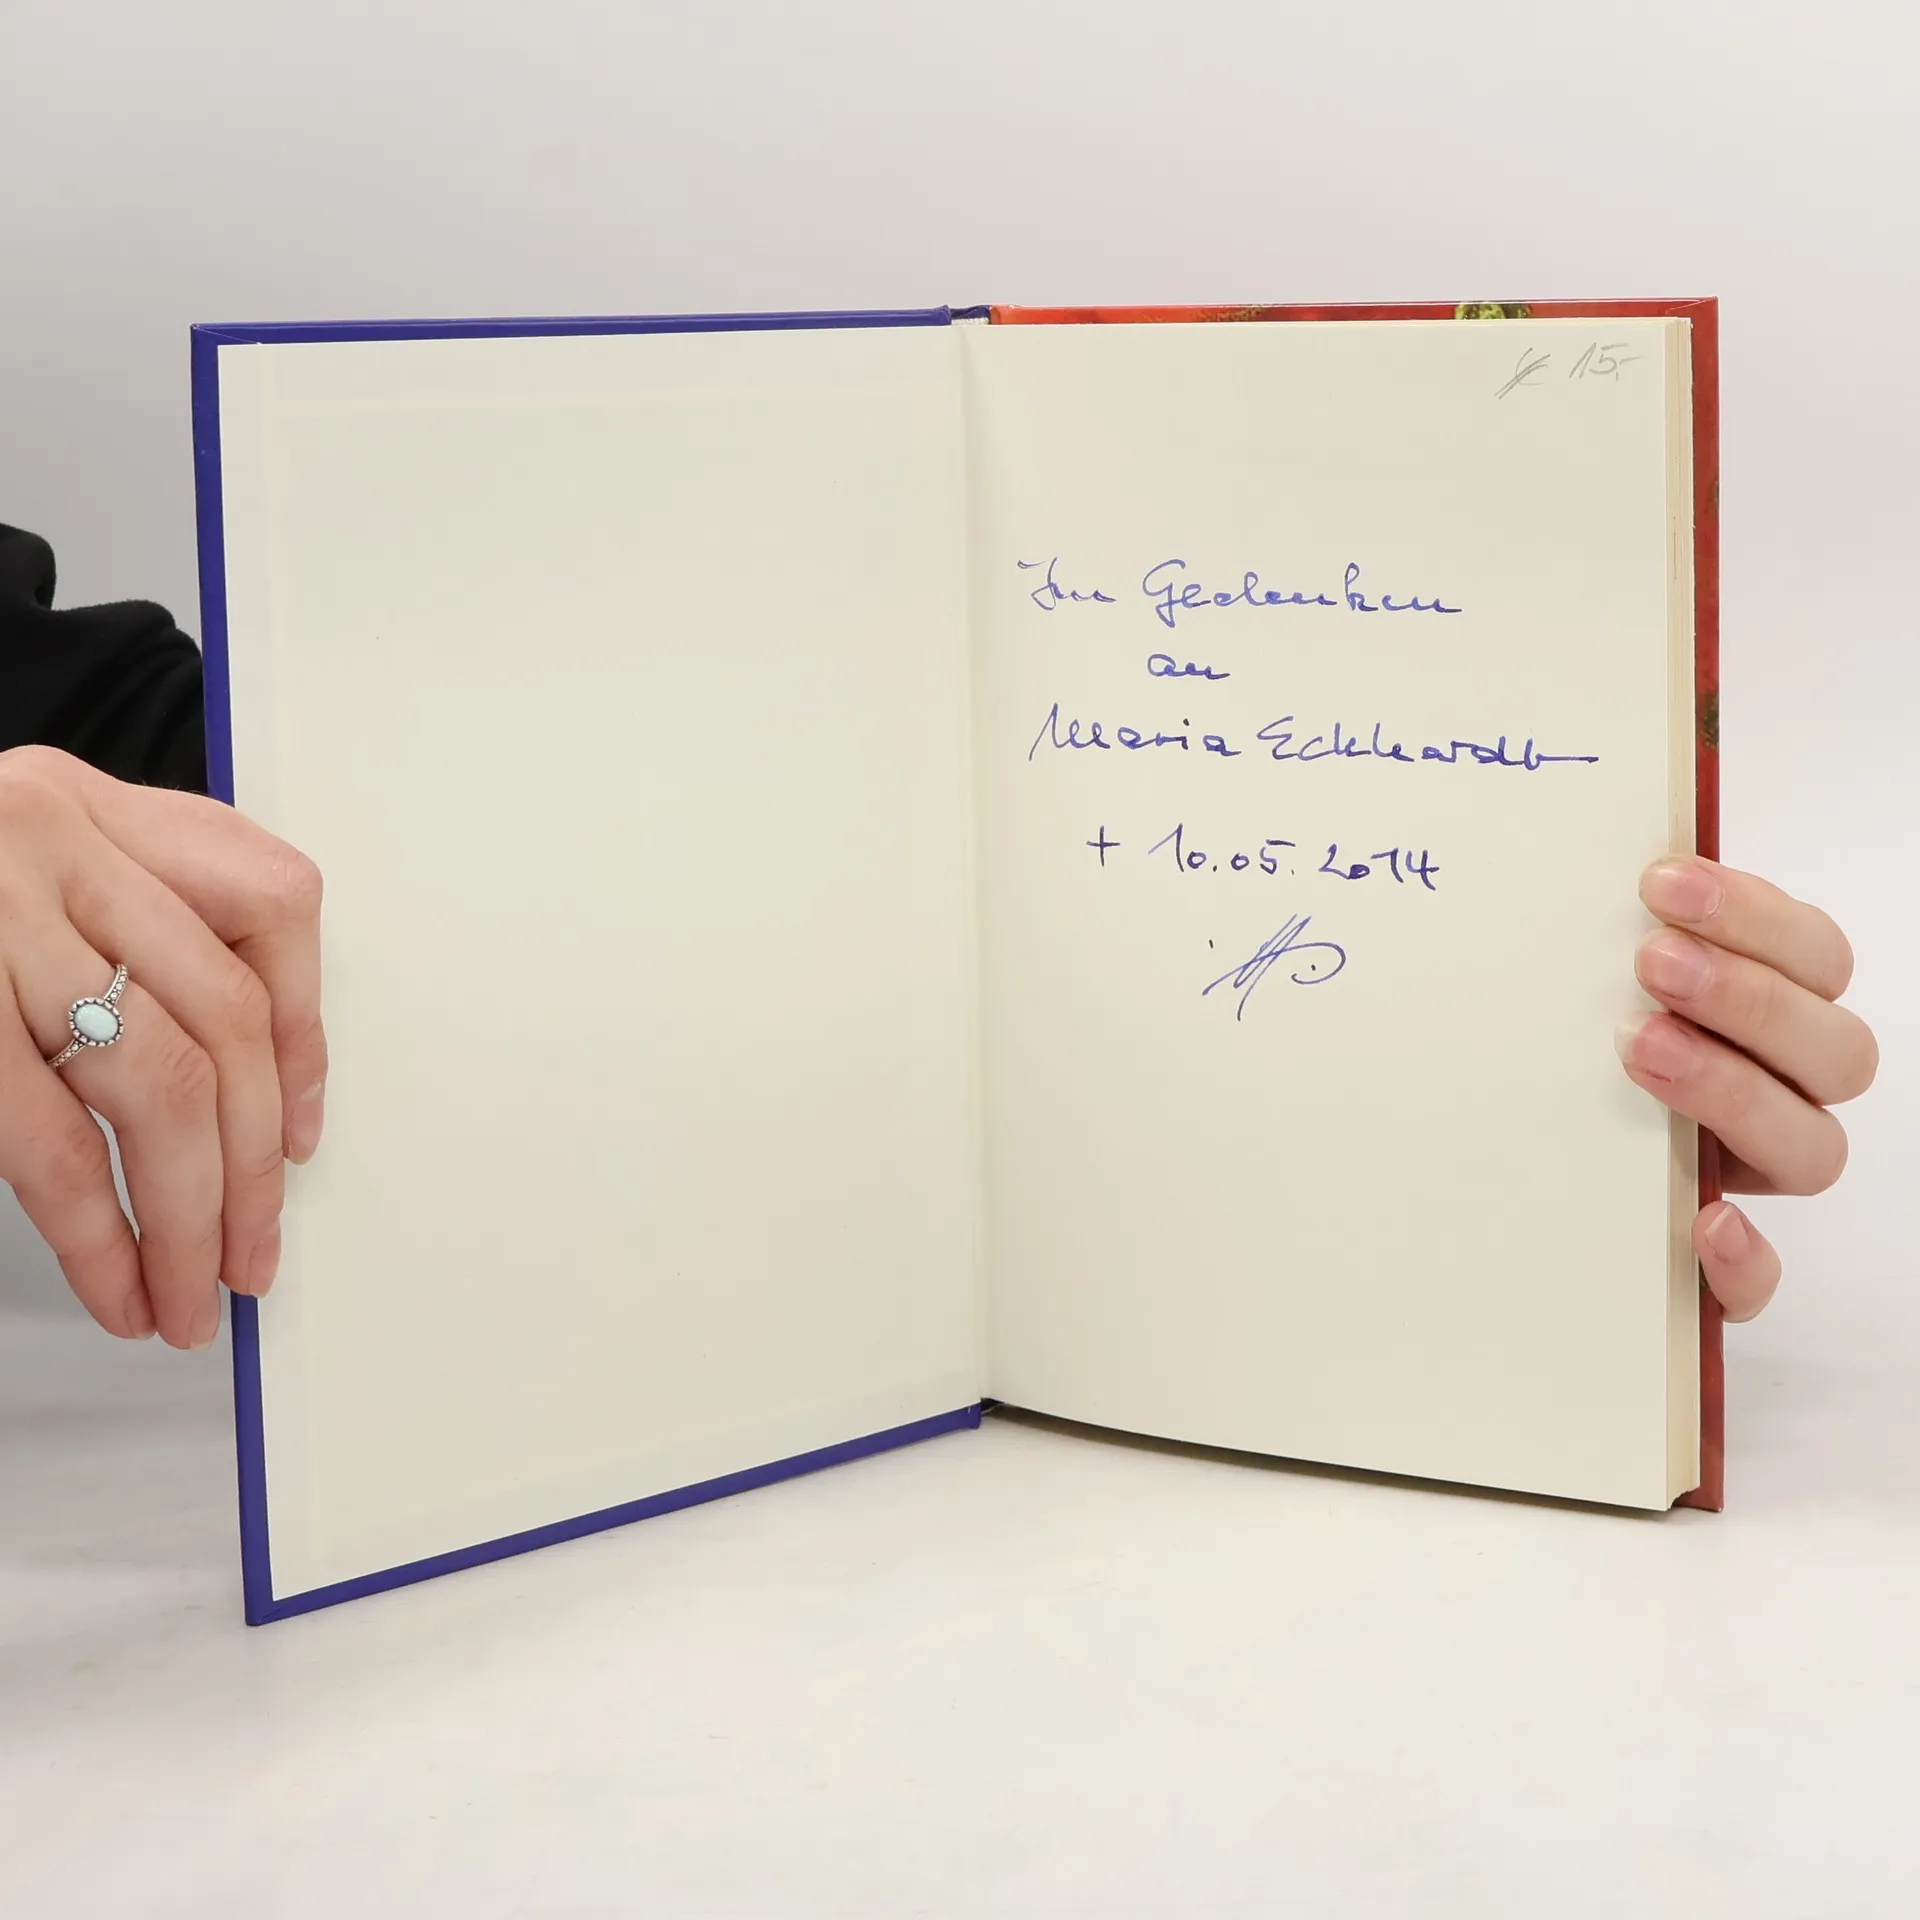 € 15,-
Im Gedenken
an
Maria Eckhardt
+ 10.05.2014